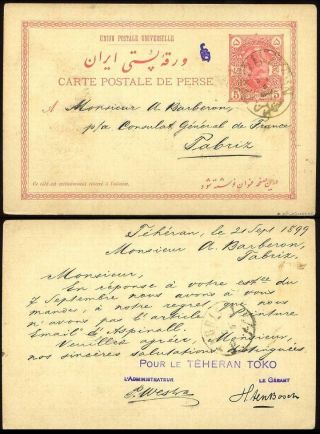 UNION POSTALE UNIVERSELLE
ورقه پستی ایران
CARTE POSTALE DE PERSE
5 5
A Monsieur A. Barberon,
p/a Consulat Général de France
Tabriz
Ce côté est exclusivement réservé à l'adresse.
در این صفحه عنوان نوشته شود
Téhéran, le 21 Sept 1899
Monsieur A. Barberon,
Tabriz.
Monsieur,
En réponse à votre est.ée du
7 Septembre nous avons à vous
mander, à notre regret, que nous
n'avons pas l'article Peinture
Email G. Aspinall.
Veuillez agréer, Monsieur,
nos sincères salutations distinguées
POUR LE TÉHÉRAN TOKO
L'ADMINISTRATEUR LE GÉRANT
P. Westra H. ten Bosch